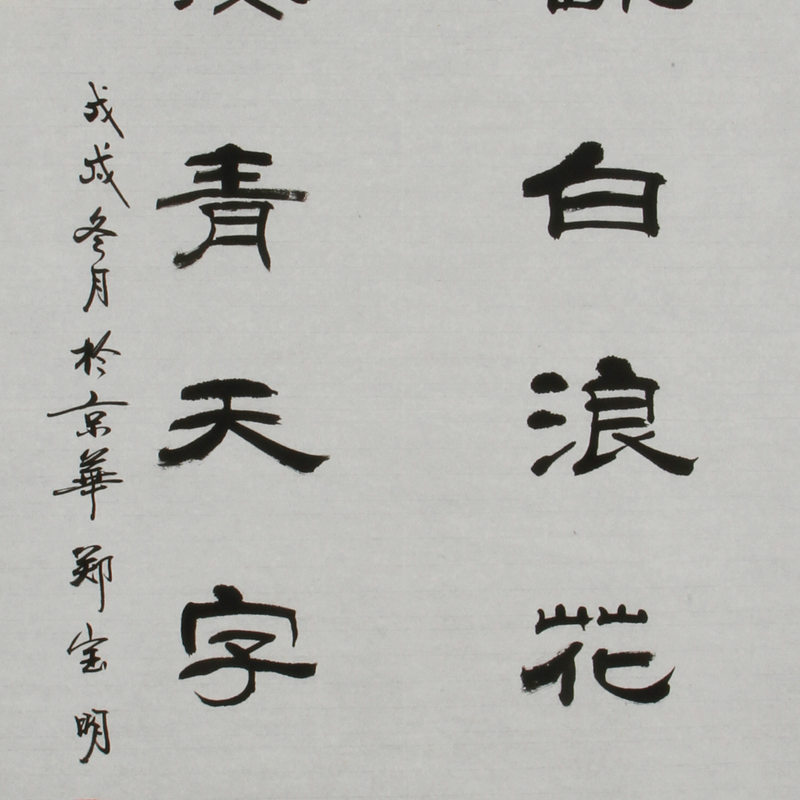 白浪花
青天字
戊戌冬月於京華郑宝明